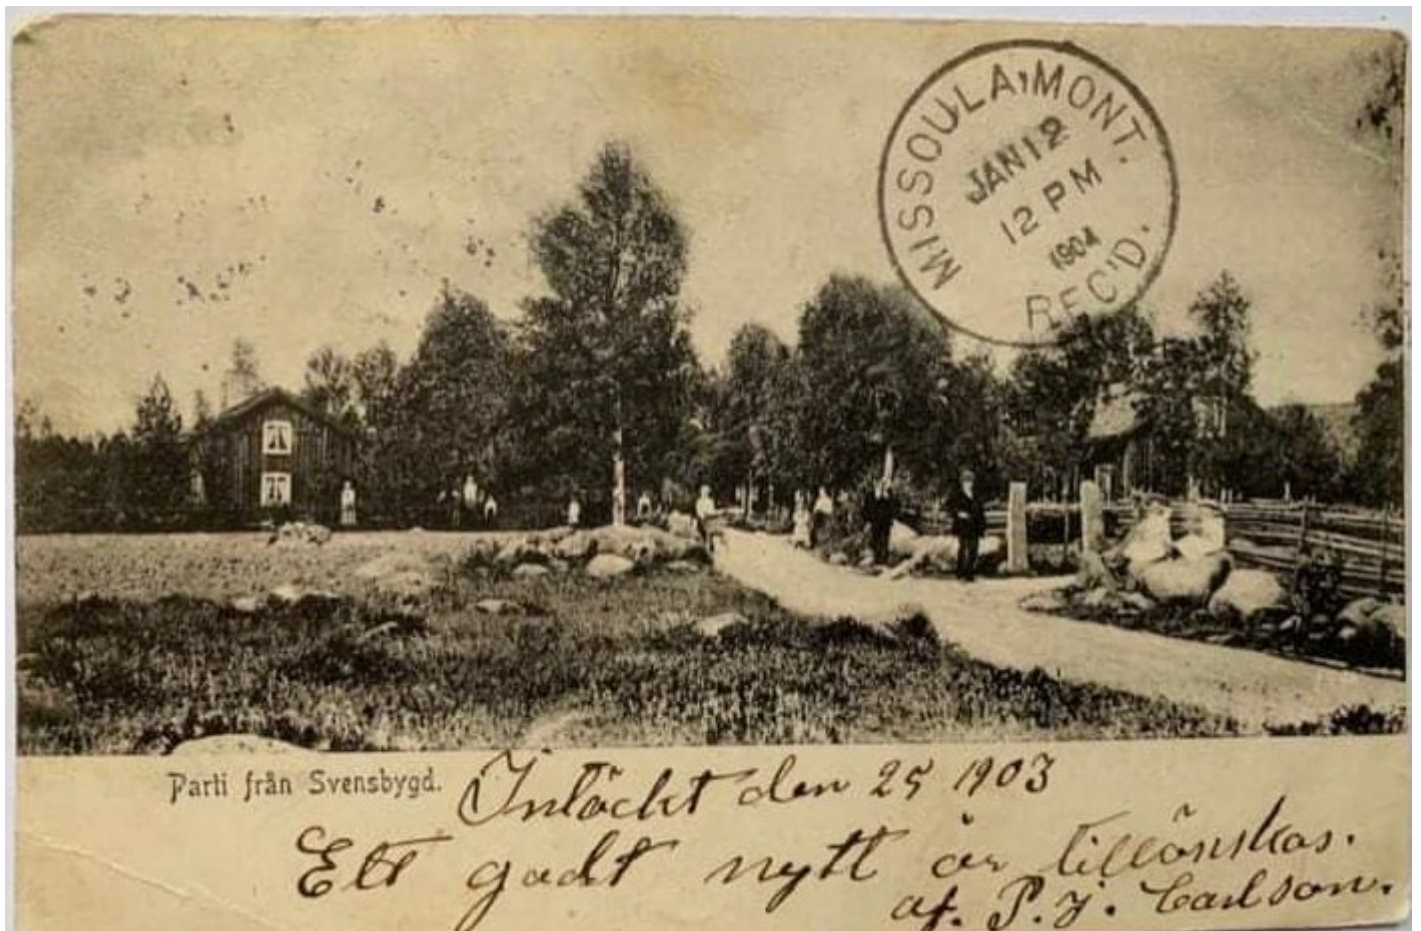 MISSOULA, MONT.
JAN 12
12 PM
1904
REC'D.
Parti från Svensbygd.
Intäckt den 25 1903
Ett godt nytt år tillönskas.
af. P. J. Carlson.